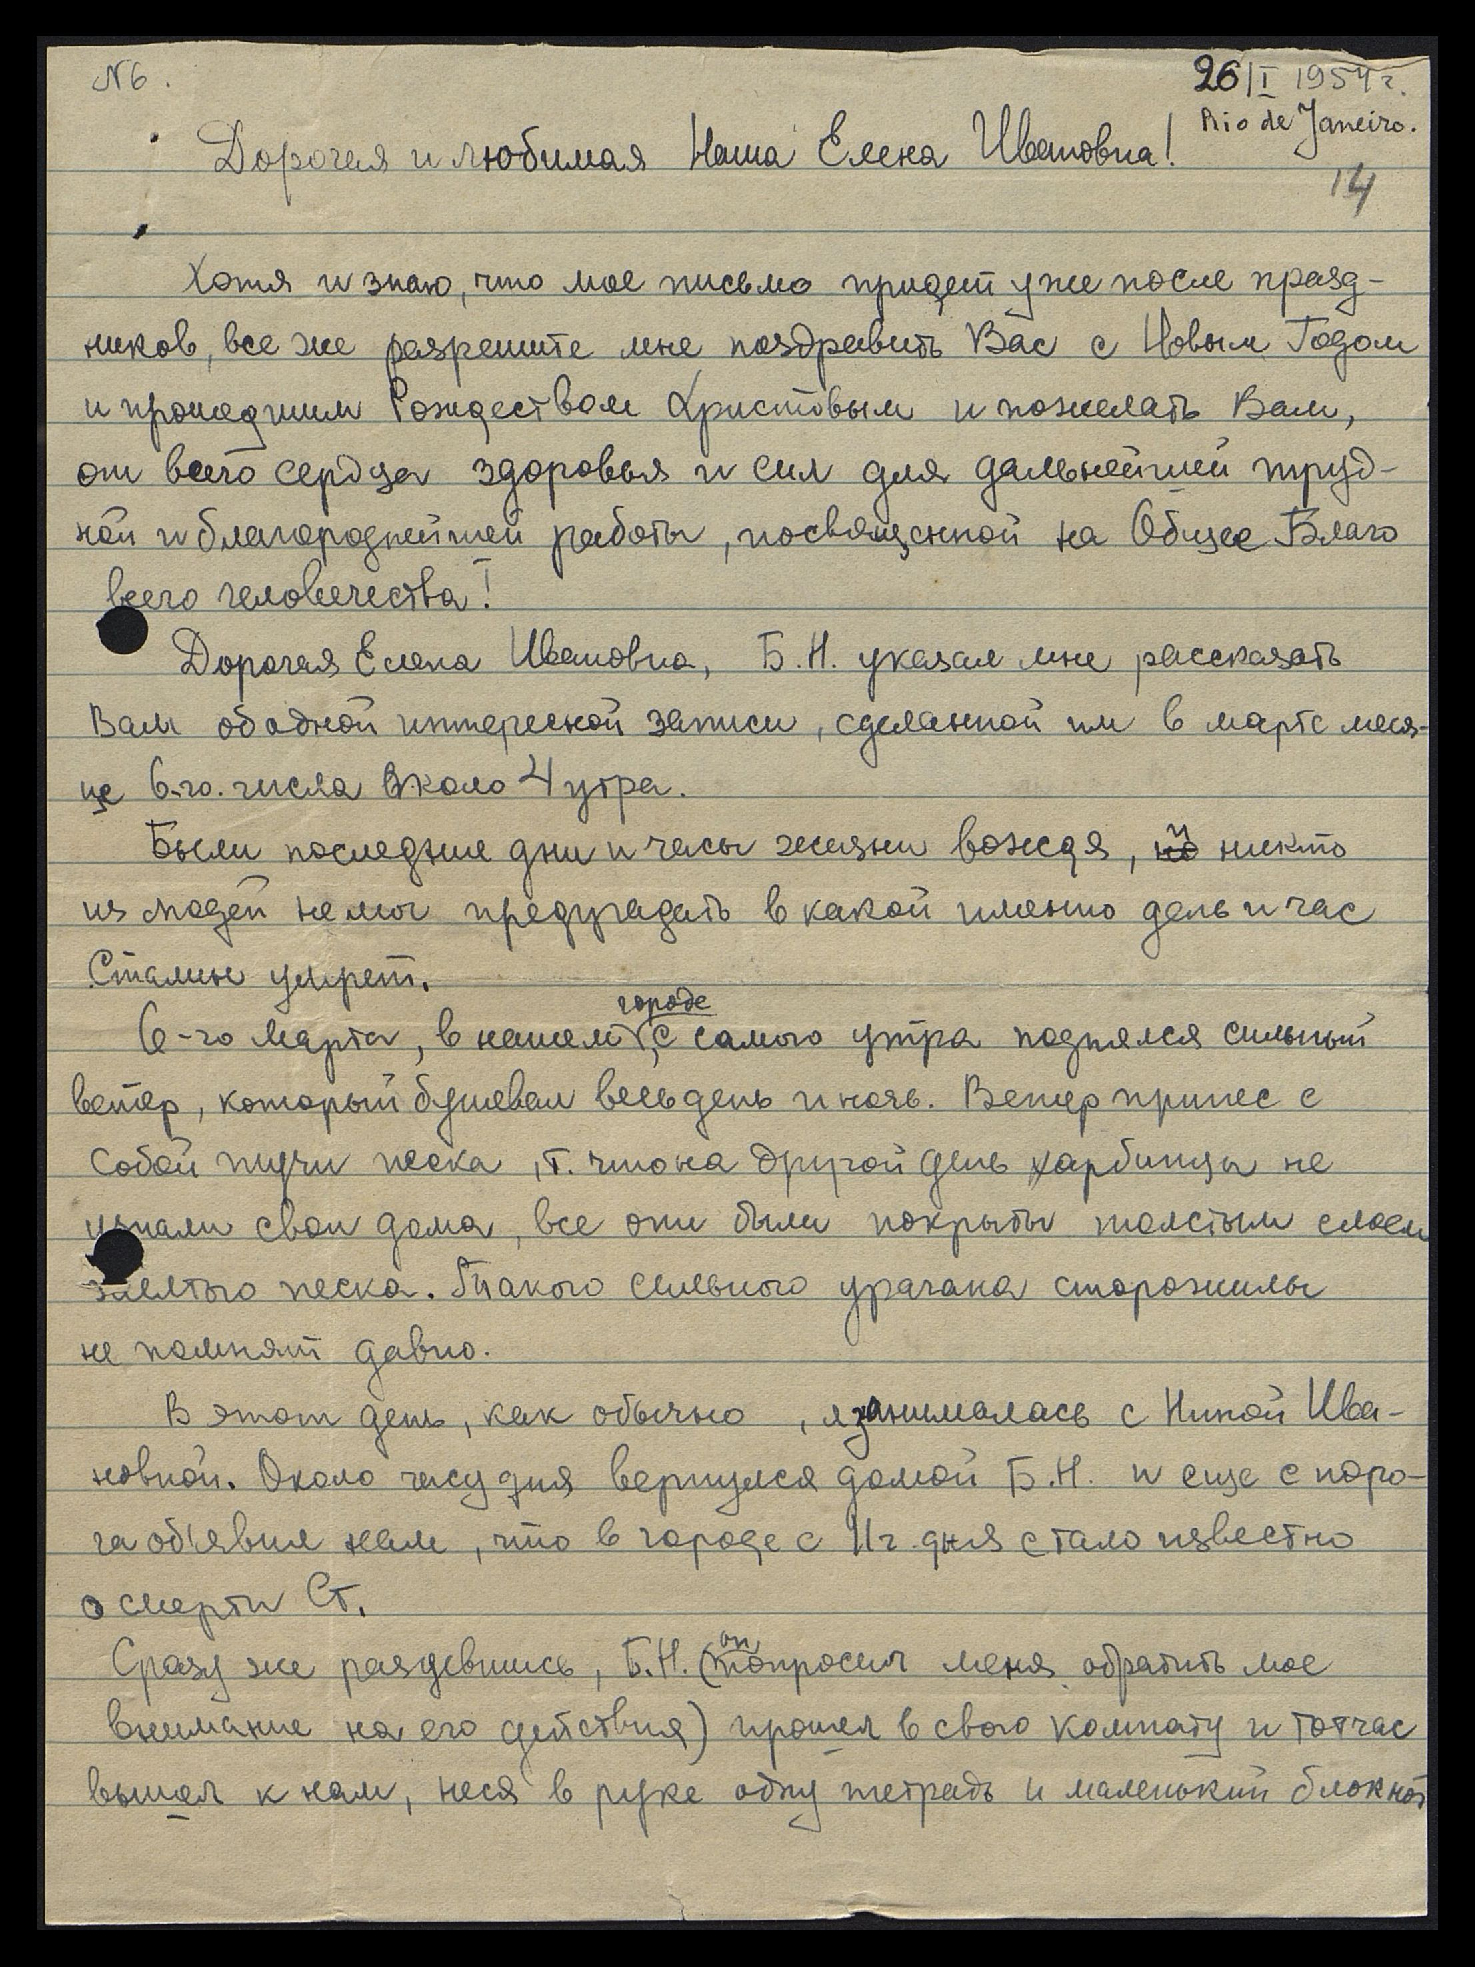 N 6.
26/I 1954 г.
Rio de Janeiro.
Дорогая и любимая Наша Елена Ивановна!
14
Хотя и знаю, что мое письмо придет уже после празд-
ников, все же разрешите мне поздравить Вас с Новым Годом
и прошедшим Рождеством Христовым и пожелать Вам,
от всего сердца здоровья и сил для дальнейшей труд-
ной и благороднейшей работы, посвященной на Общее Благо
всего человечества!
Дорогая Елена Ивановна, Б.Н. указал мне рассказать
Вам об одной интересной записи, сделанной им в марте меся-
це 6-го. числа около 4 утра.
Были последние дни и часы жизни вождя, и никто
из людей не мог предугадать в какой именно день и час
Сталин умрет.
6-го Марта, в нашем городе, с самого утра поднялся сильный
ветер, который бушевал весь день и ночь. Ветер принес с
собой тучи песка, т. что на другой день харбинцы не
узнали свои дома, все они были покрыты толстым слоем
желтого песка. Такого сильного урагана старожилы
не помнят давно.
В этот день, как обычно, я занималась с Ниной Ива-
новной. Около часу дня вернулся домой Б.Н. и еще с поро-
га об'явил нам, что в городе с 11 ч. дня стало известно
о смерти Ст.
Сразу же раздевшись, Б.Н. (он попросил меня обратить мое
внимание на его действия) прошел в свою комнату и тотчас
вышел к нам, неся в руке одну тетрадь и маленький блокнот